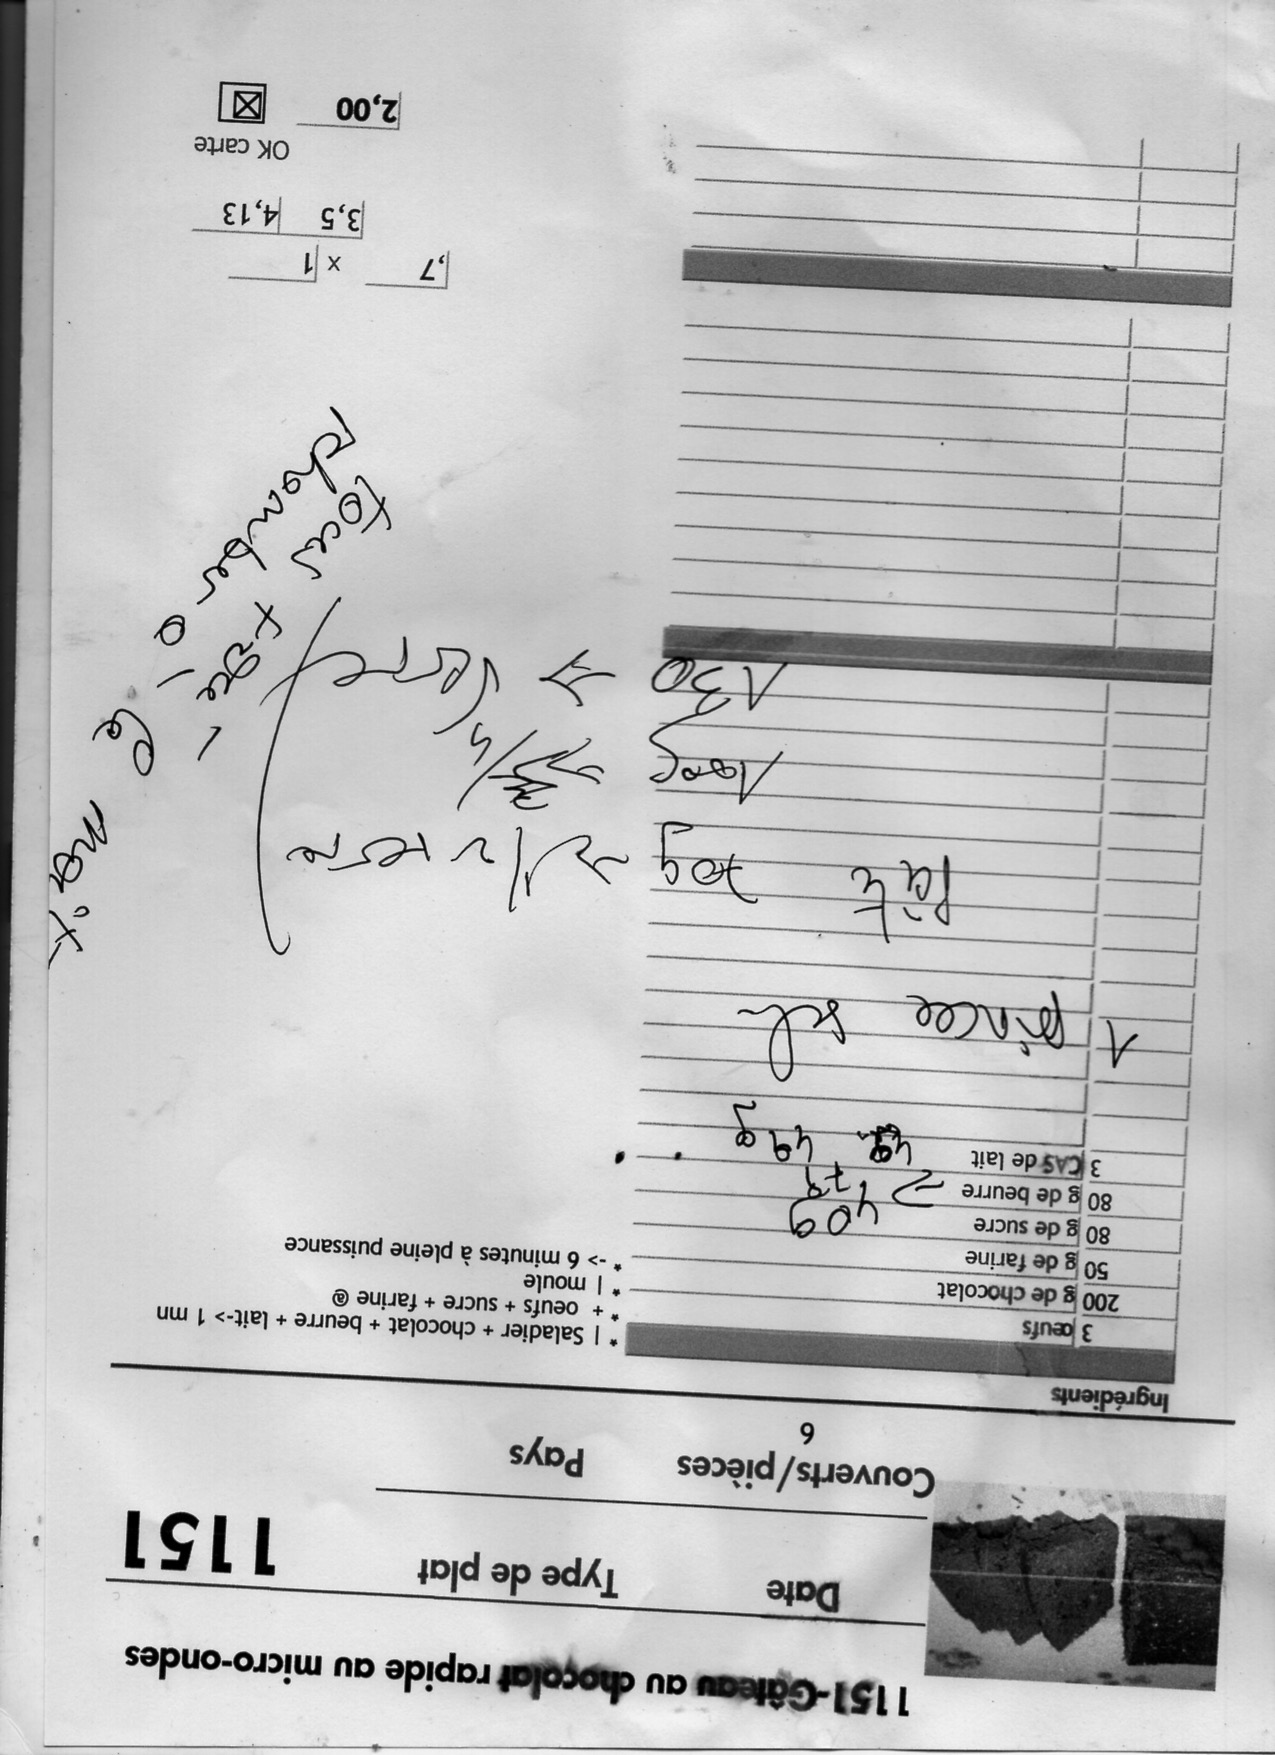 1151-Gâteau au chocolat rapide au micro-ondes
Date
Type de plat
1151
Couverts/pièces
Pays
6
Ingrédients
3 œufs
200 g de chocolat
50 g de farine
80 g de sucre
80 g de beurre
3 CAS de lait
* | Saladier + chocolat + beurre + lait-> 1 mn
* + oeufs + sucre + farine @
* | moule
* -> 6 minutes à pleine puissance
40g
49 g
1 pincée sel
pâte
70g -> 1/2 verre
100g
130 -> verre
,7 x 1
3,5 4,13
OK carte
2,00